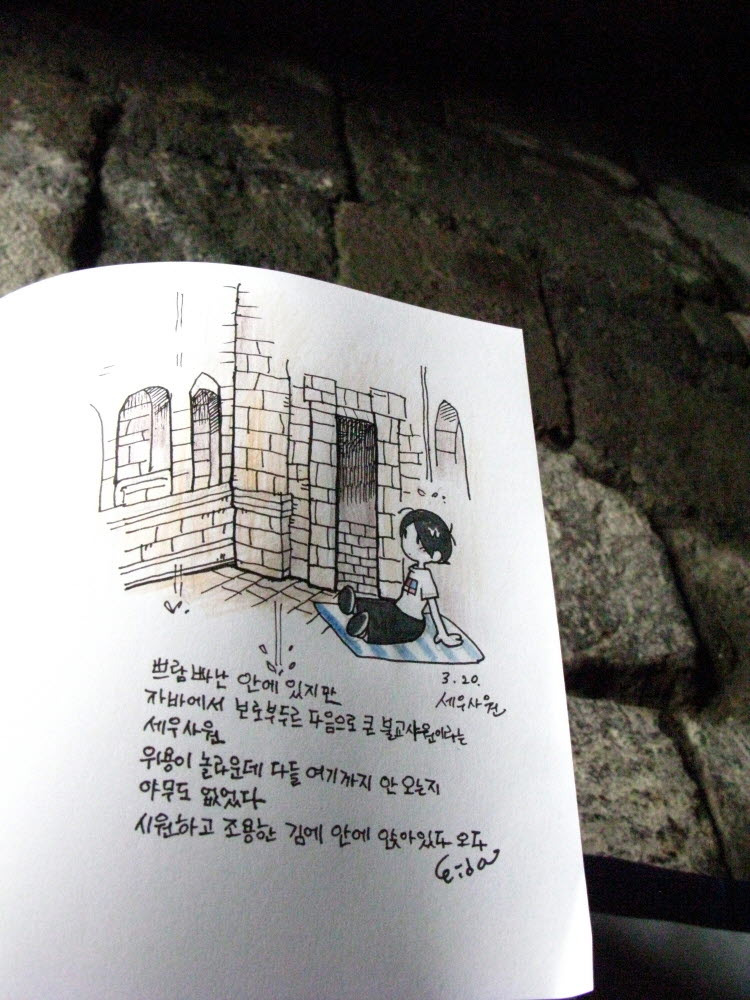 3.20.
세우사원
쁘람빠난 안에 있지만
자바에서 보로부두르 다음으로 큰 불교사원이라는
세우사원
위용이 놀라운데 다들 여기까지 안 오는지
아무도 없었다
시원하고 조용한 김에 안에 앉아있다 오다